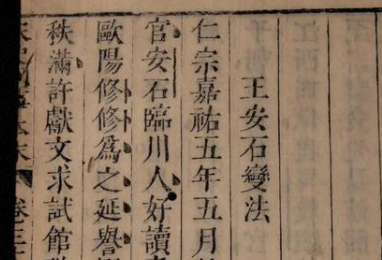 王安石變法
仁宗嘉祐五年五月
官安石臨川人好讀
歐陽修修爲之延譽
秩滿許獻文求試館